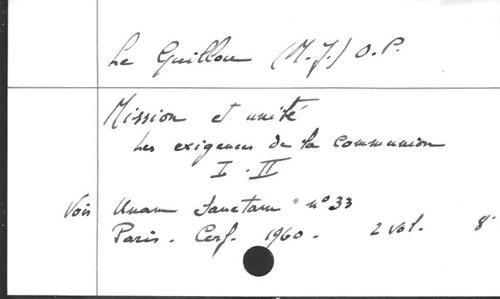 Le Guillou (M.J.) O.P.
Mission et unité
Les exigences de la communion
I - II
Voir Unam Sanctam n° 33
Paris. Cerf. 1960. 2 vol. 8°